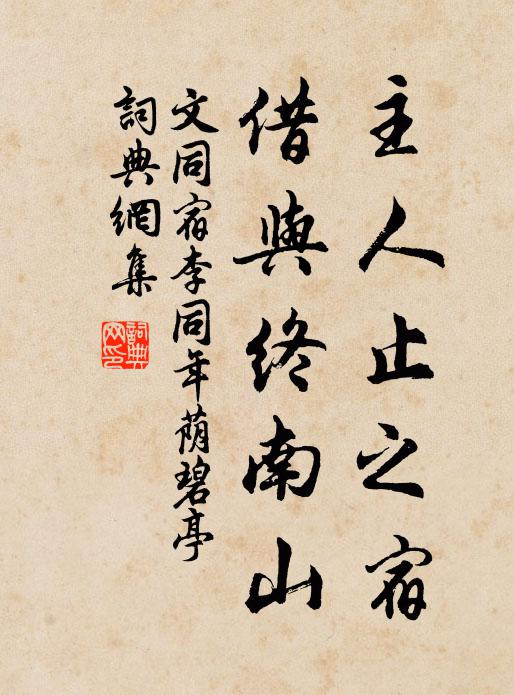 主人止之宿
借與終南山
文同宿李同年蔭碧亭
詞典網集
詞典網印